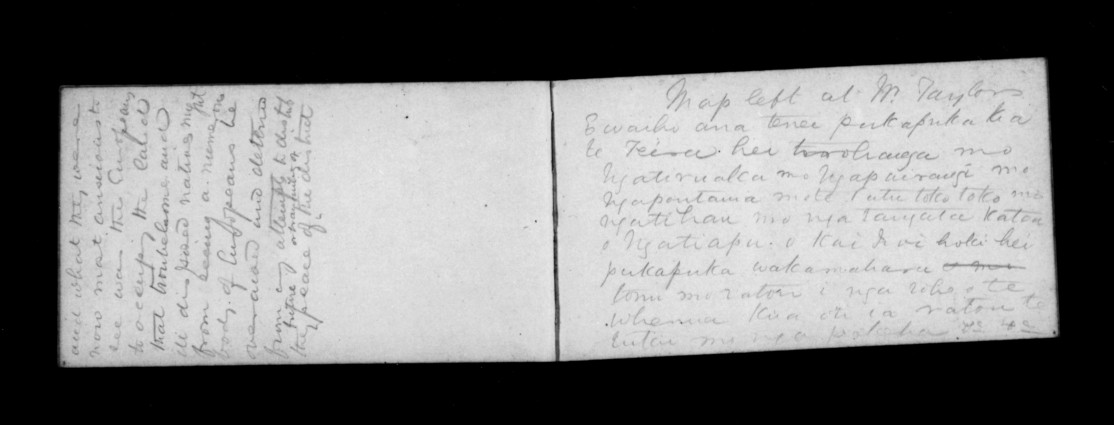 and what they were
now most anxious to
see was the Europeans
to occupy the land
that troublesome and
ill disposed natives might
from seeing a numerous
body of Europeans be
overawed and deterred
from attempts to disturb
the peace of the district
Map left at Mr Taylors
E waiho ana tenei pukapuka kia
te Teira hei mo
Ngatiruaka mo Ngapairangi mo
Ngapoutama mo te Patutokotoko mo
ngatihau mo nga tangata katoa
o Ngatiapa o Kai Iwi hoki hei
pukapuka wakamahara
tonu mo ratou i nga rohe o te
whenua Kua oti ia ratou te
tuku mo nga pakeha